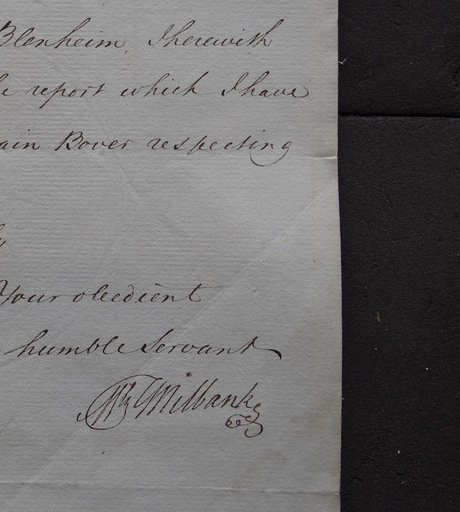 Blenheim, I herewith
report which I have
Bover respecting
Your obedient
humble Servant
Milbanke